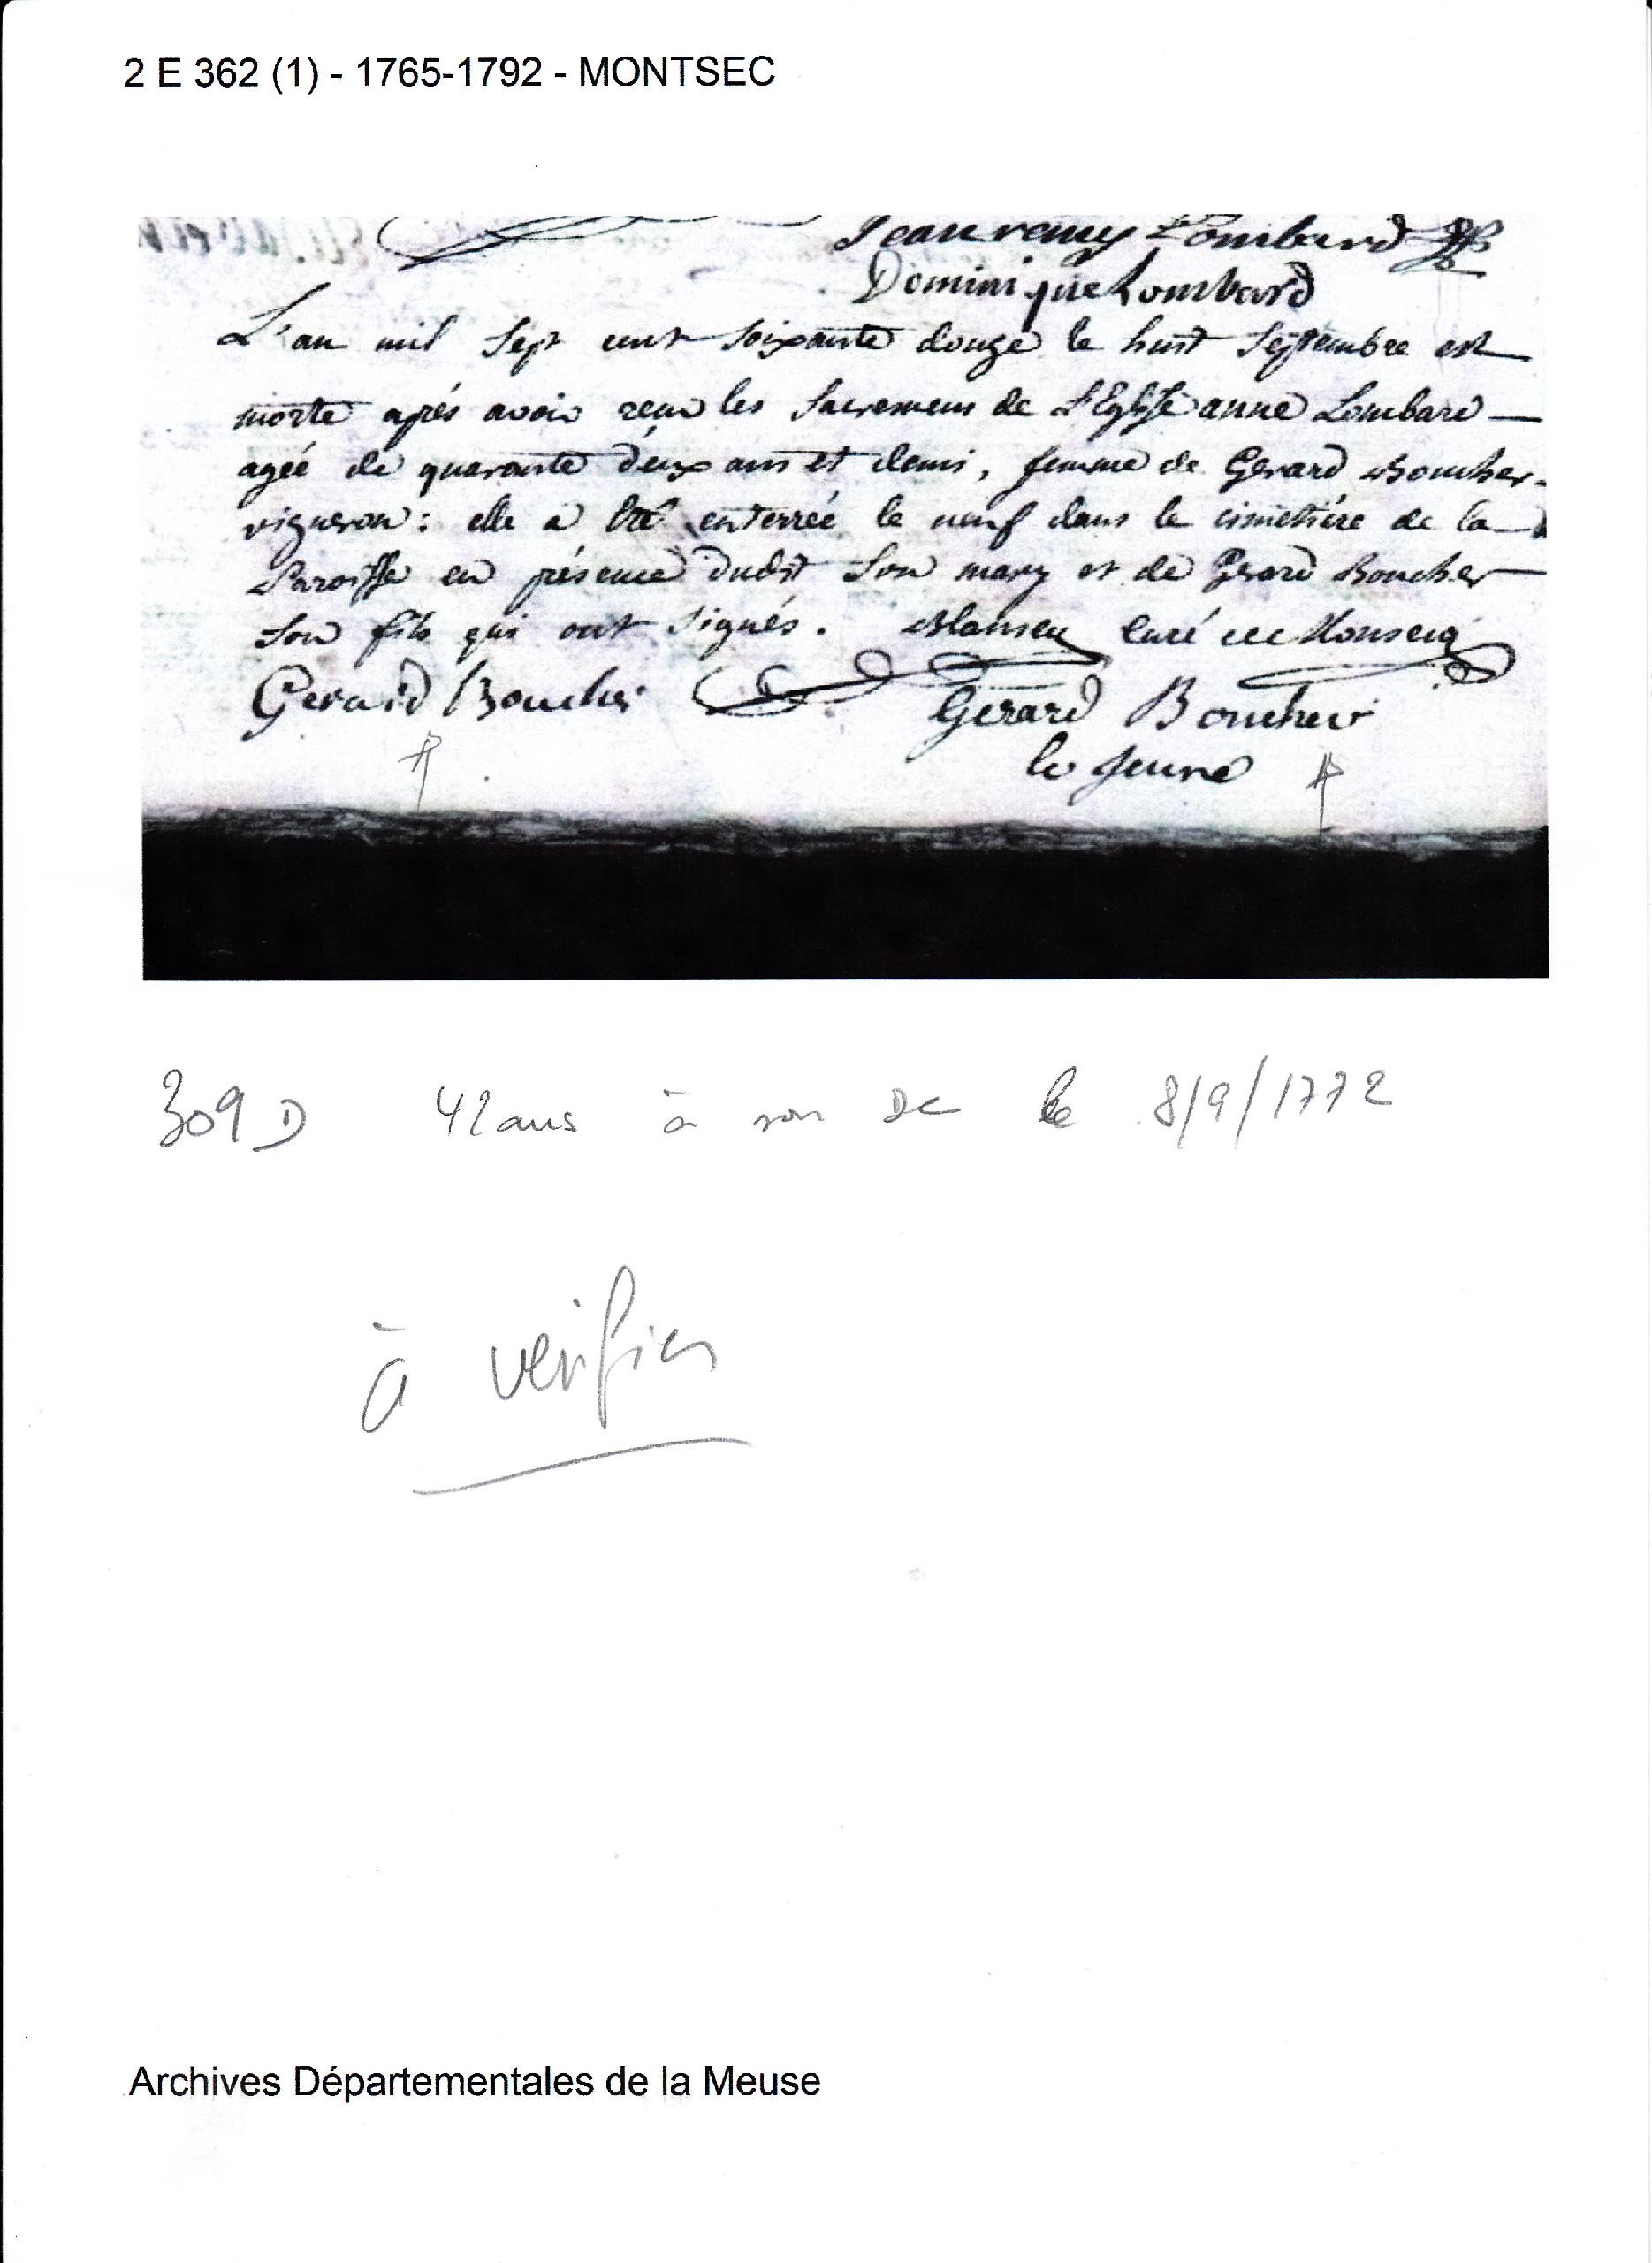 2 E 362 (1) - 1765-1792 - MONTSEC
Jean remy Lombard
Dominique Lombard
L'an mil sept cent soixante douze le huit septembre est
morte aprés avoir reçu les sacremens de L'Eglise anne Lombard
agée de quarante deux ans et demi, femme de Gerard Boucher
vigneron : elle a été enterrée le neuf dans le cimetiére de la
Paroisse en présence dudit son mary et de Gerard Boucher
son fils qui ont signés. curé de
Gerard Boucher Gerard Boucher
le jeune
309 D 42 ans à son DC le 8/9/1772
à vérifier
Archives Départementales de la Meuse